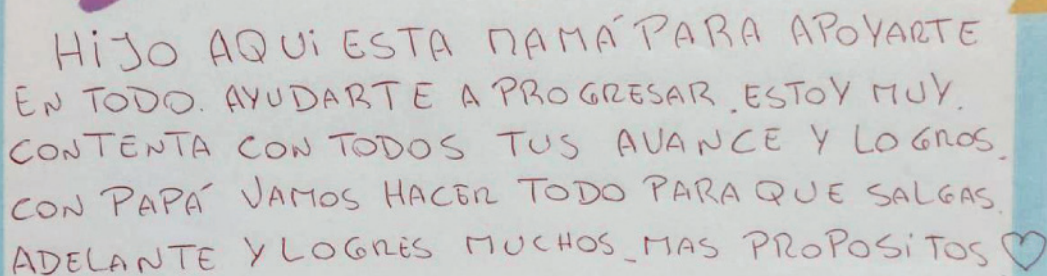 HiJO AQUi ESTA MAMÁ PARA APOYARTE
EN TODO. AYUDARTE A PROGRESAR. ESTOY MUY.
CONTENTA CON TODOS TUS AVANCE Y LOGROS.
CON PAPÁ VAMOS HACER TODO PARA QUE SALGAS.
ADELANTE Y LOGRES MUCHOS_MAS PROPOSiTOS ♡